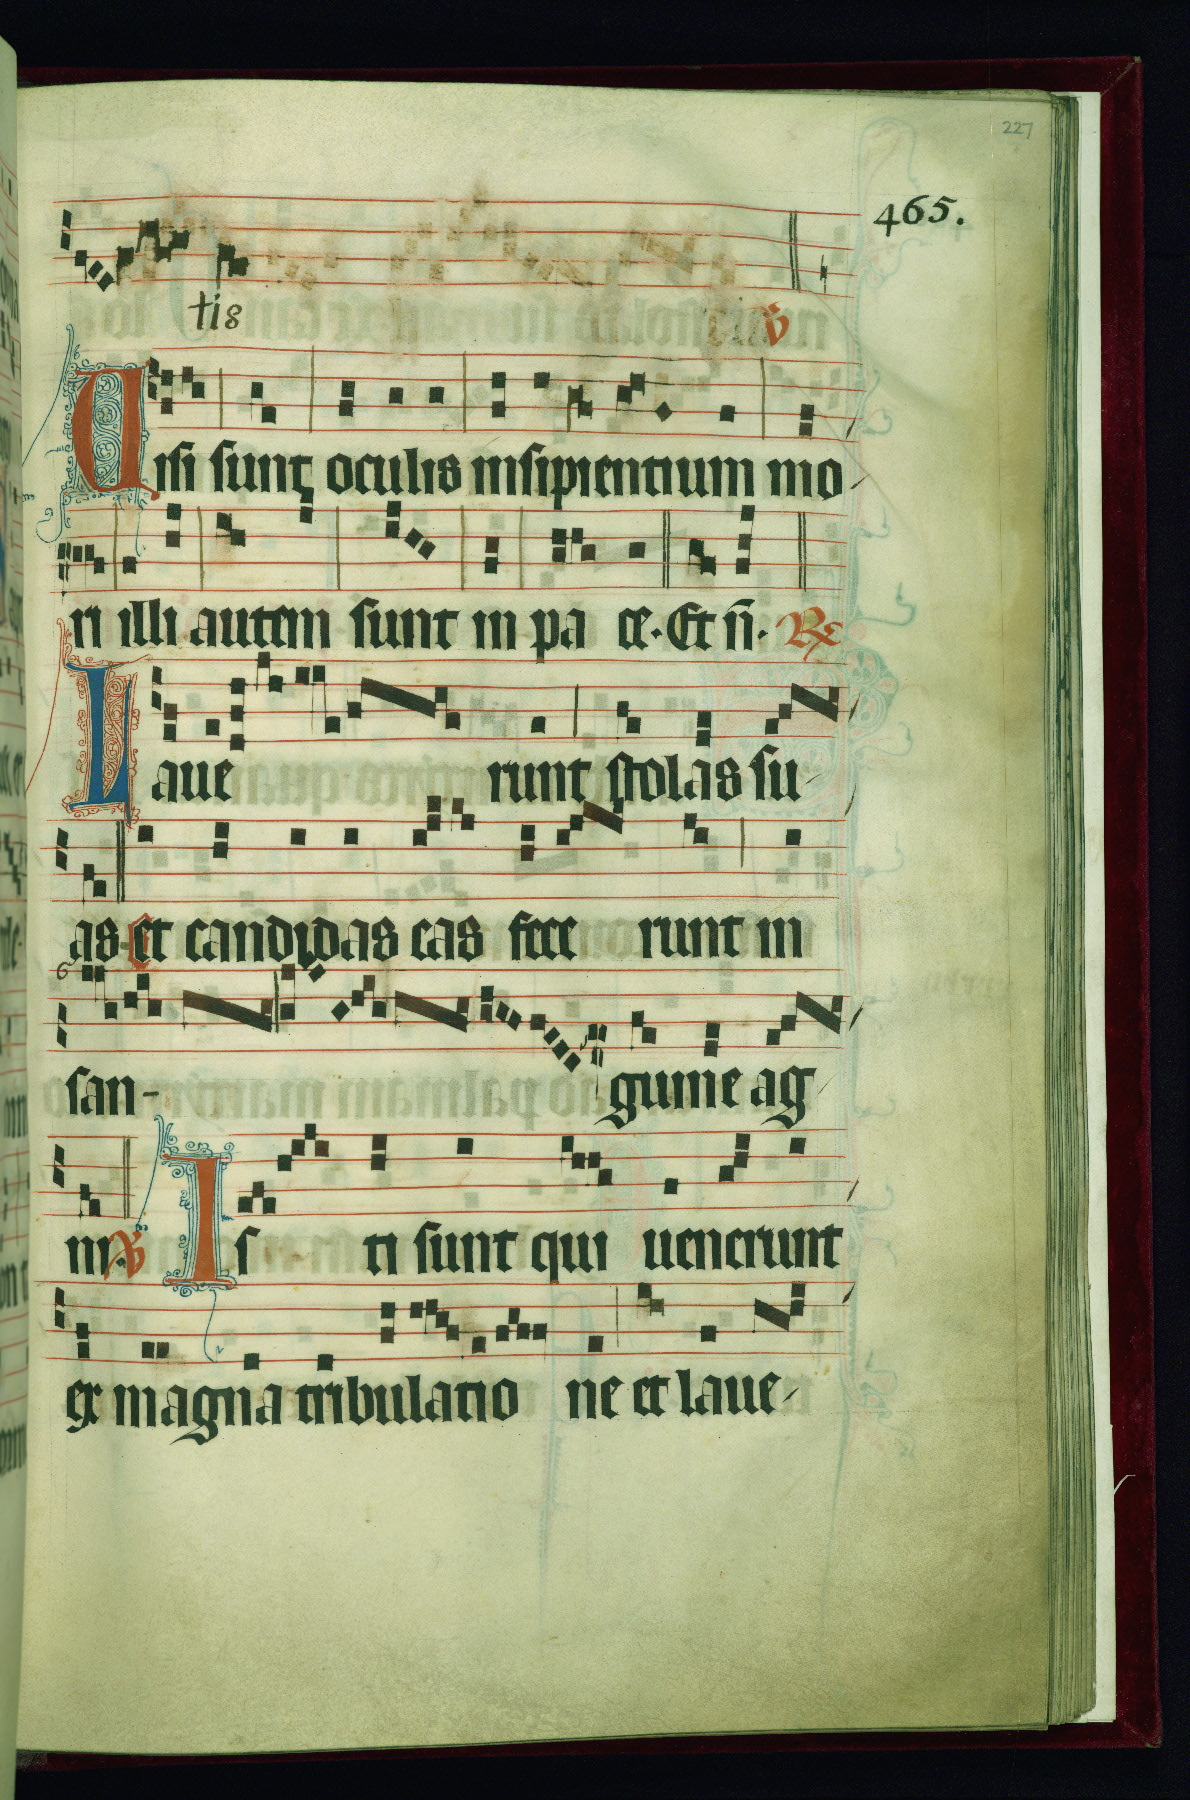 227
465.
tis ℣
Visi sunt oculis insipientium mo
ri illi autem sunt in pa ce. Et n̄. ℟
Laue runt stolas su-
as et candidas eas fece runt in
san- guine ag
ni. ℣ Is ti sunt qui uenerunt
ex magna tribulatio ne et laue-